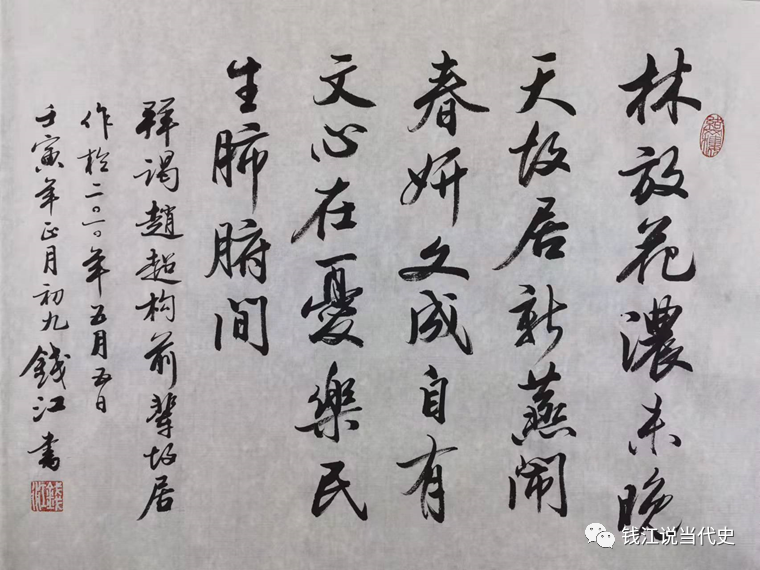 林放花濃未晚
天故居新燕闹
春妍文成自有
文心在憂樂民
生肺腑间
拜謁趙超构前輩故居
作於二〇一〇年五月五日
壬寅年正月初九錢江書
钱江说当代史